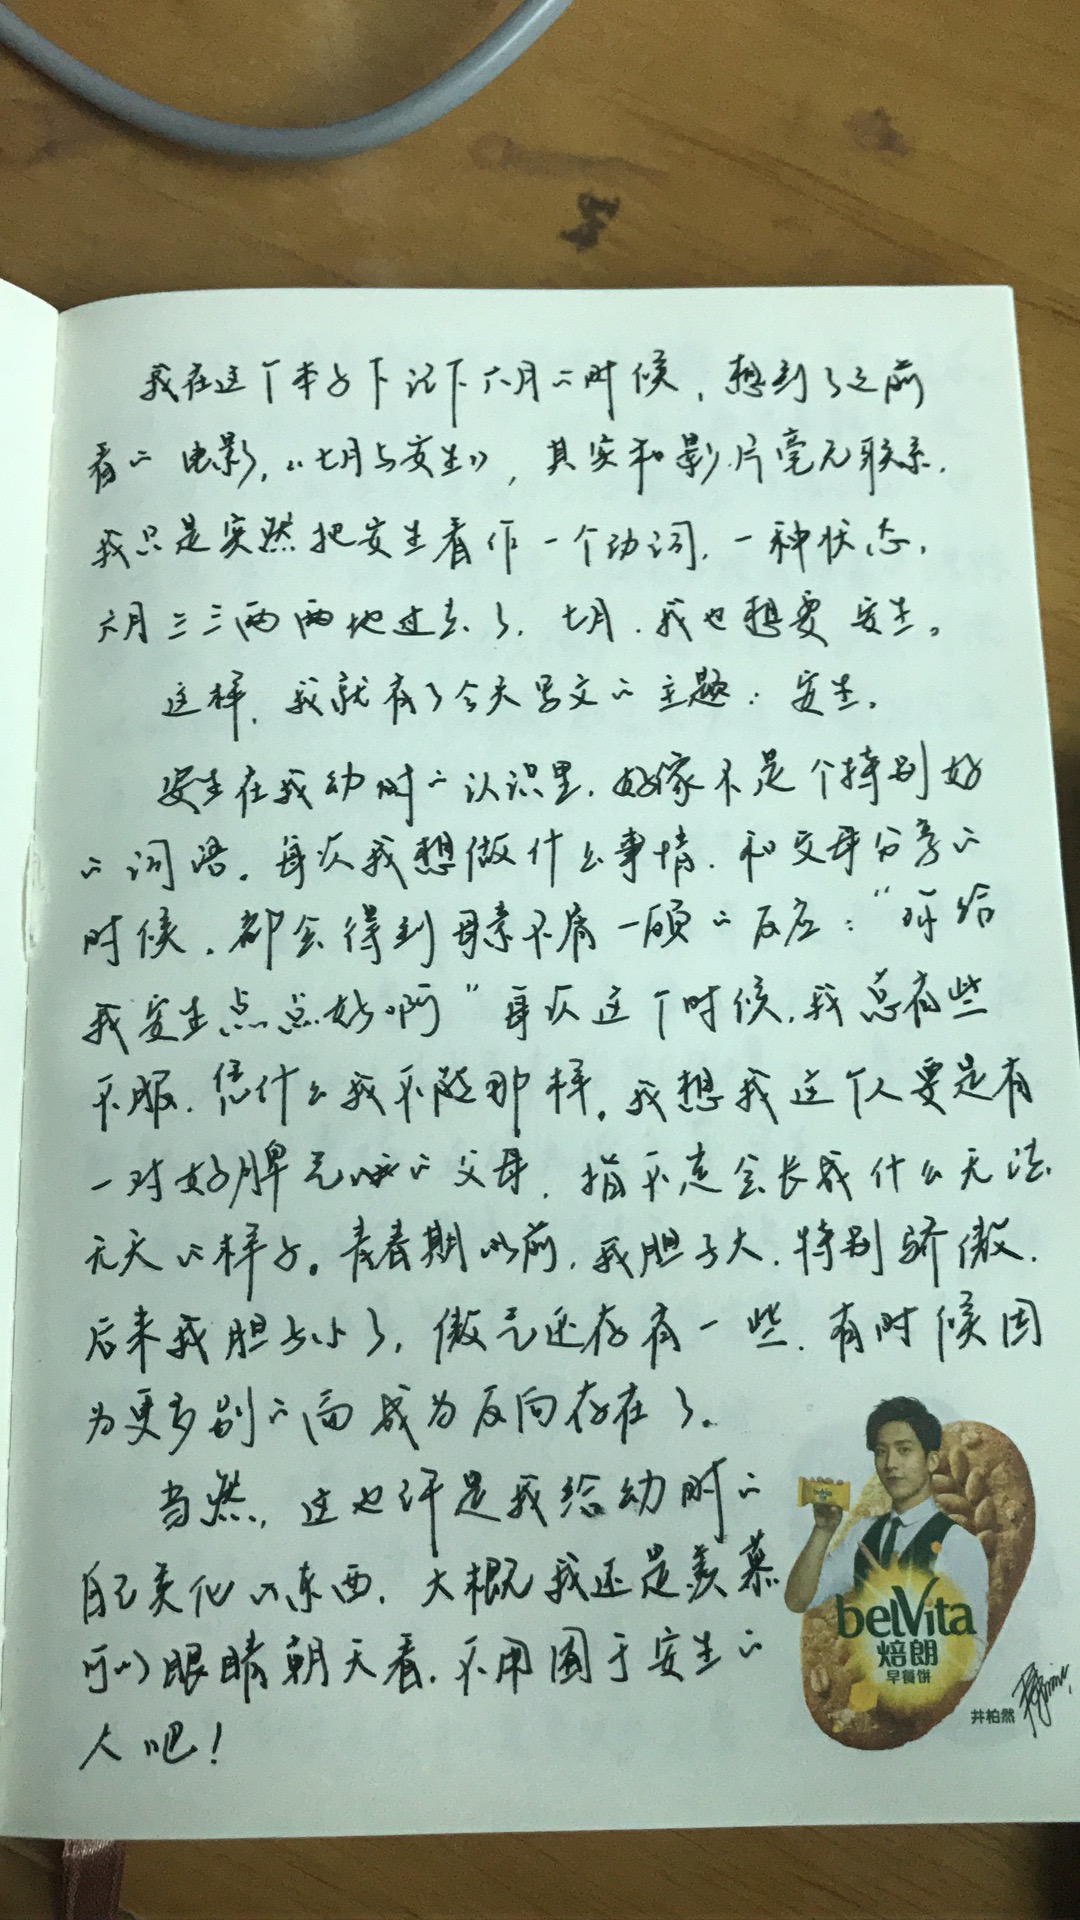 我在这个本子下记下六月的时候，想到了之前
看的电影，《七月与安生》，其实和影片毫无联系，
我只是突然把安生看作一个动词，一种状态，
六月三三两两地过去了，七月，我也想要安生。
这样，我就有了今天写文的主题：安生。
安生在我幼时的认识里，好像不是个特别好
的词语。每次我想做什么事情，和父母分享的
时候，都会得到母亲不屑一顾的反应：“你给
我安生点点好啊”每次这个时候，我总有些
不服，凭什么我不能那样。我想我这个人要是有
一对好脾气的父母，指不定会长成什么无法
无天的样子。青春期以前，我胆子大，特别骄傲，
后来我胆子小了，傲气还存有一些，有时候因
为更多别的而成为反向存在了。
当然，这也许是我给幼时的
自己美化的东西，大概我还是羡慕
可以眼睛朝天看，不用囿于安生的
人吧！
belVita
belVita
焙朗
早餐饼
井柏然